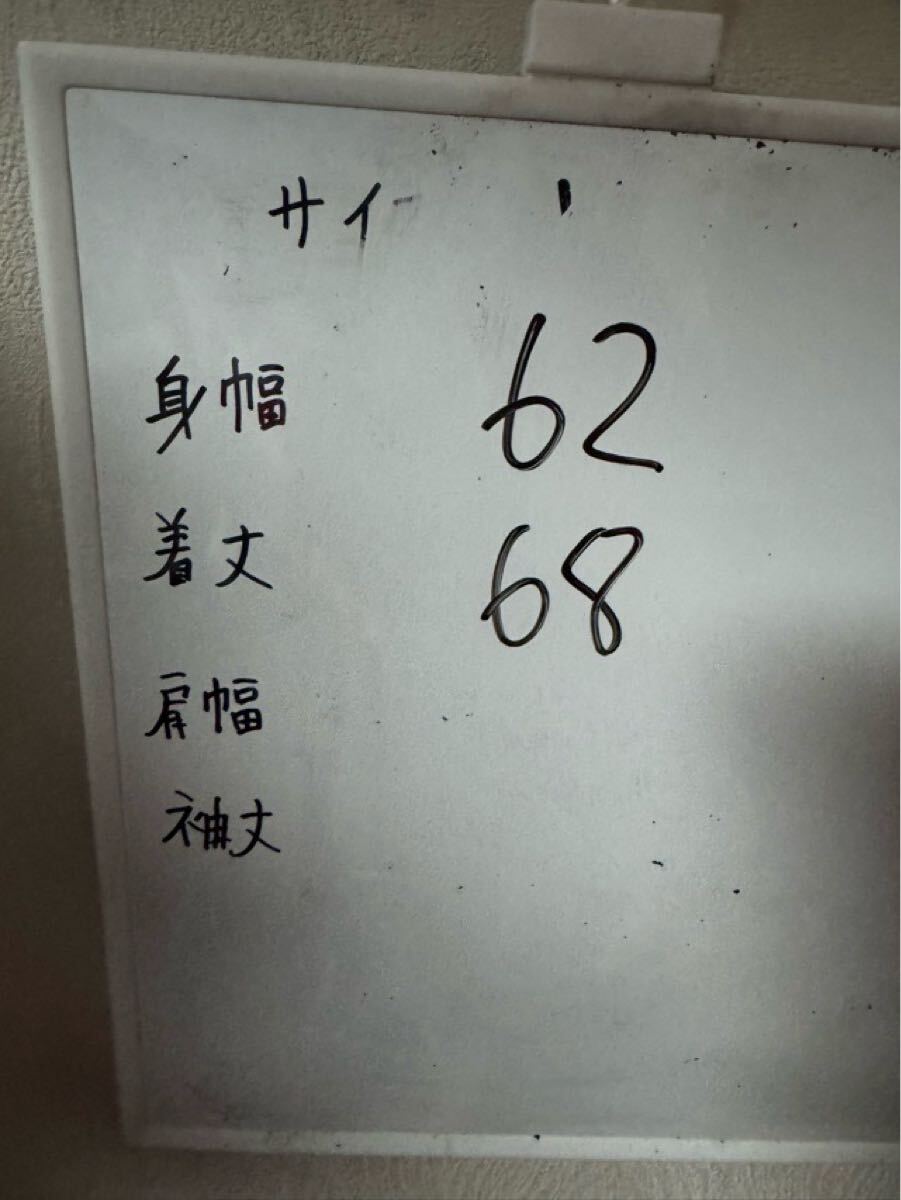 サイ
身幅 62
着丈 68
肩幅
袖丈